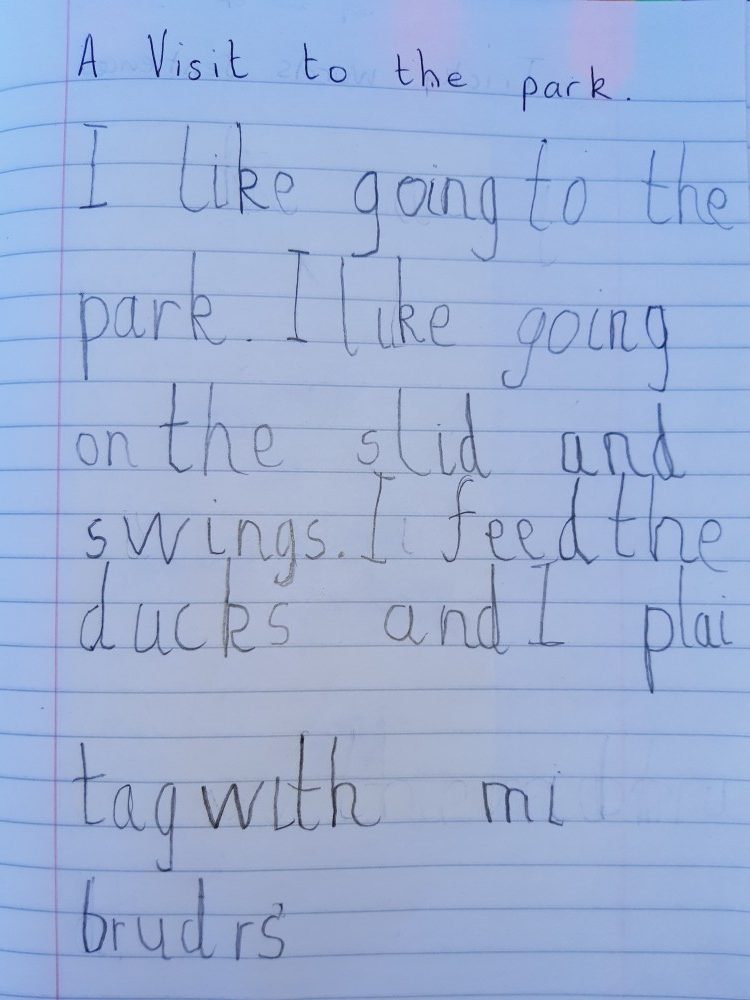 A Visit to the park.
I like going to the
park. I like going
on the slid and
swings. I feed the
ducks and I plai
tag with mi
brudrs